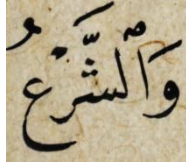 وَٱلشَّرْعُ